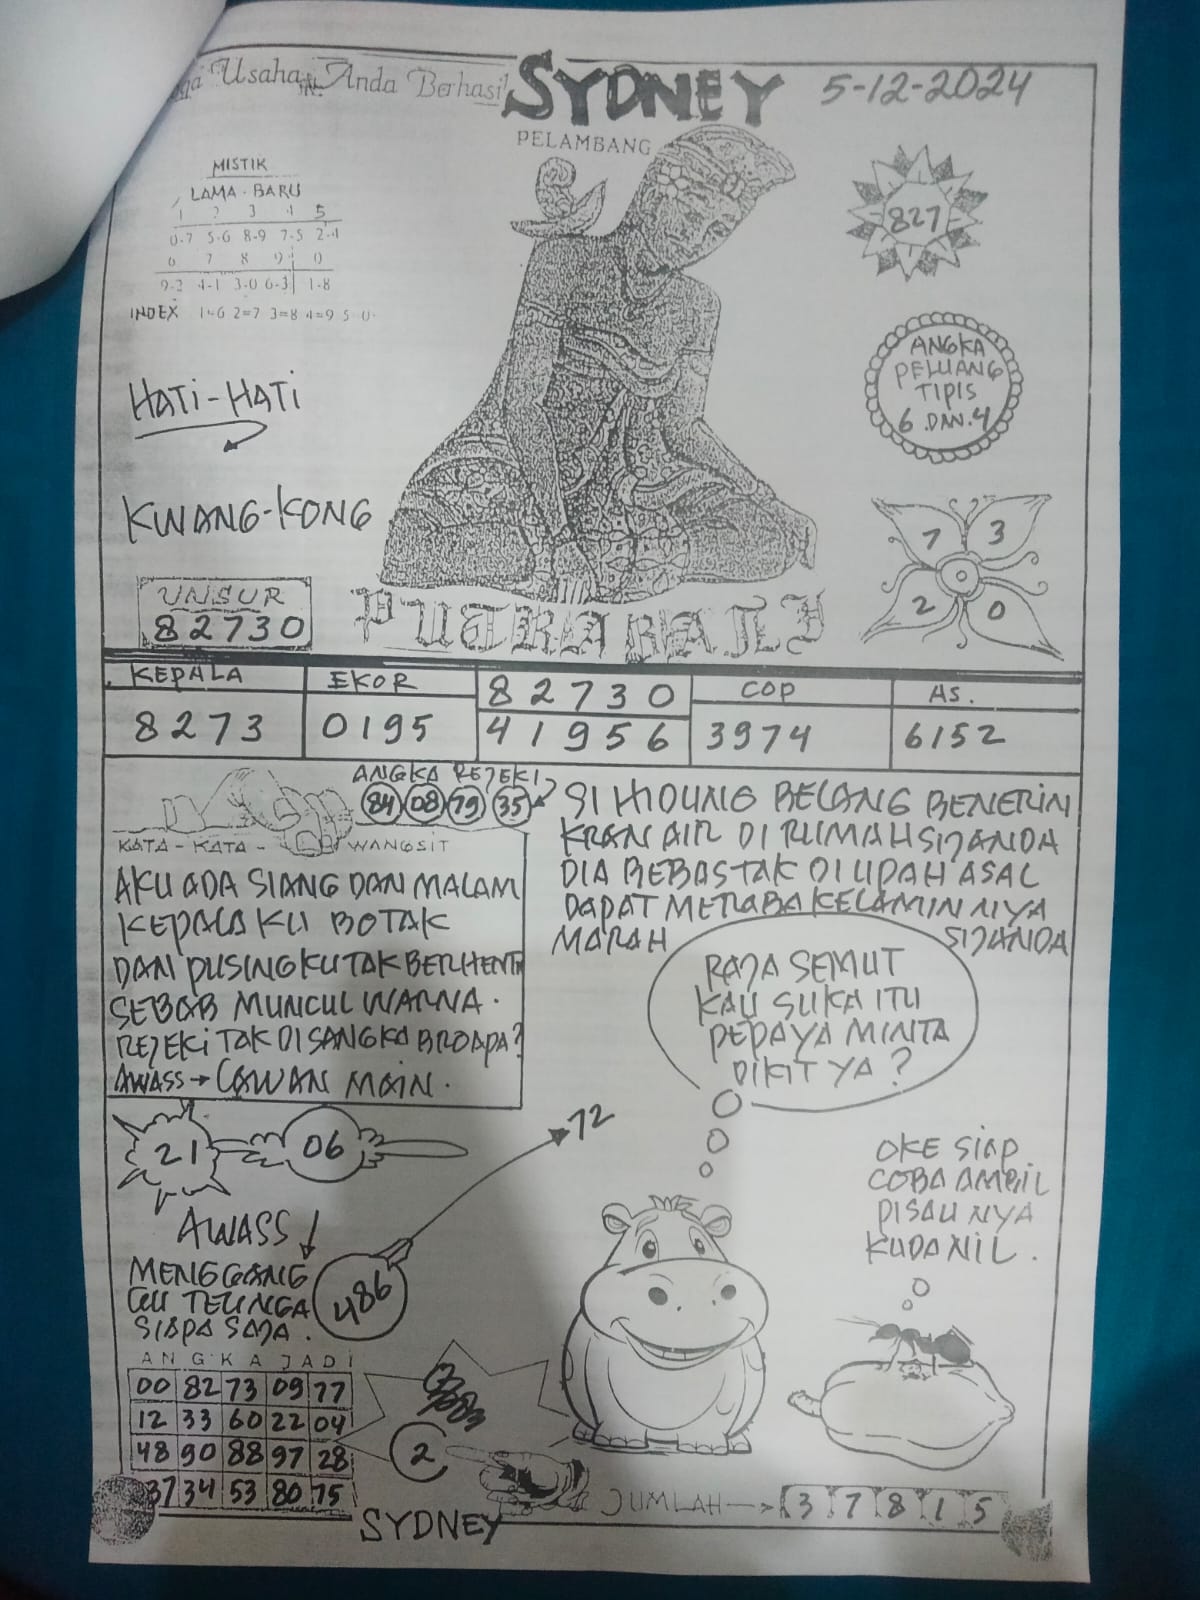 Usaha Anda Berhasil
SYDNEY
5-12-2024
PELAMBANG
MISTIK
LAMA - BARU
1 2 3 4 5
0-7 5-6 8-9 7-5 2-4
6 7 8 9 0
9-2 4-1 3-0 6-3 1-8
INDEX 1=6 2=7 3=8 4=9 5=0
827
ANGKA
PELUANG
TIPIS
6 .DAN. 4
HATI-HATI
KWANG-KONG
7 3
2 0
UNSUR
82730
PUTRA BALI
KEPALA
8273
EKOR
0195
82730
41956
COP
3974
AS.
6152
ANGKA REJEKI
84 08 79 35
KATA - KATA - WANGSIT
AKU ADA SIANG DAN MALAM
KEPALA KU BOTAK
DAN PUSINGKU TAK BERHENTI
SEBAB MUNCUL WARNA.
REJEKI TAK DISANGKA BROAPA?
AWASS → LAWAN MAIN.
SI HIDUNG BELANG BENERIN
KRAN AIR DI RUMAH SIJANDA
DIA BEBASTAK DI UPAH ASAL
DAPAT MERABA KELAMIN NYA
MARAH SIJANDA
RAJA SEMUT
KAU SUKA ITU
PEPAYA MINTA
DIKIT YA?
21
06
72
OKE SIAP
COBA AMBIL
PISAU NYA
KUDA NIL.
AWASS
MENGGANG
GU TELINGA
SIAPA SAJA.
486
ANGKA JADI
00 82 73 09 77
12 33 60 22 04
48 90 88 97 28
37 34 53 80 75
2
SYDNEY
JUMLAH → 3 7 8 1 5